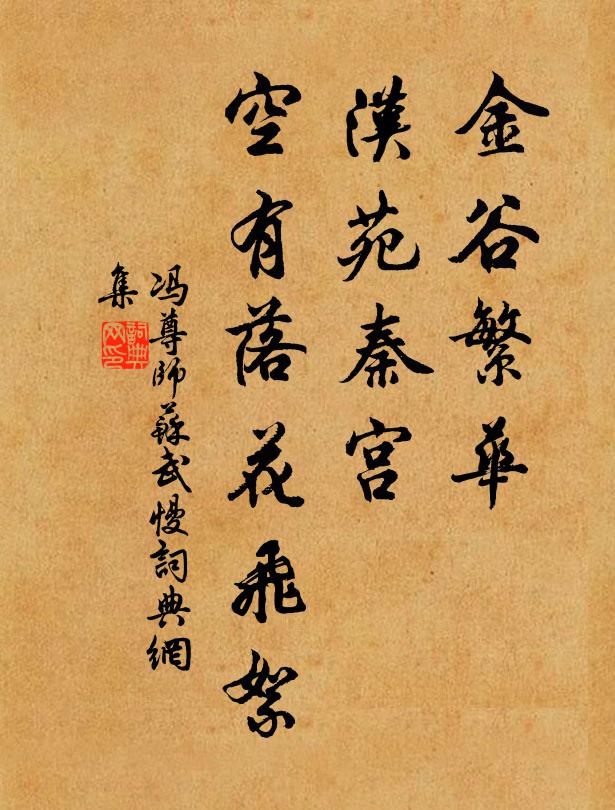 金谷繁華
漢苑秦宮
空有落花飛絮
冯尊師蘇武慢詞典網
集
詞典
网印